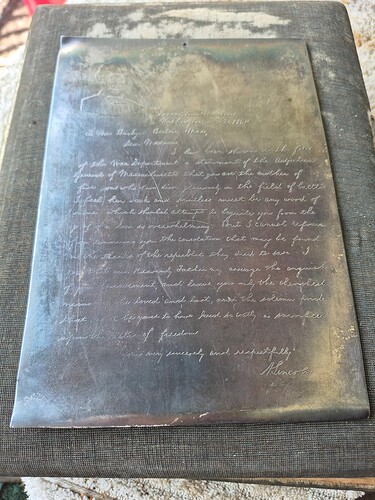 Executive Mansion
Washington
To Mrs Bixby Boston Mass
Dear Madam
I have been shown in the files
of the War Department a statement of the Adjutant
General of Massachusetts that you are the mother of
five sons who have died gloriously on the field of battle
I feel how weak and fruitless must be any word of
mine which should attempt to beguile you from the
grief of a loss so overwhelming But I cannot refrain
from tendering you the consolation that may be found
in the thanks of the republic they died to save I
pray that our Heavenly Father may assuage the anguish
of your bereavement and leave you only the cherished
memory loved and lost and the solemn pride
that to have laid so costly a sacrifice
upon the altar of freedom
Yours very sincerely and respectfully
A Lincoln